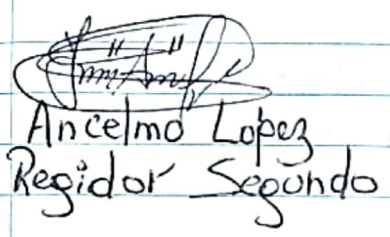 Ancelmo Lopez
Regidor Segundo